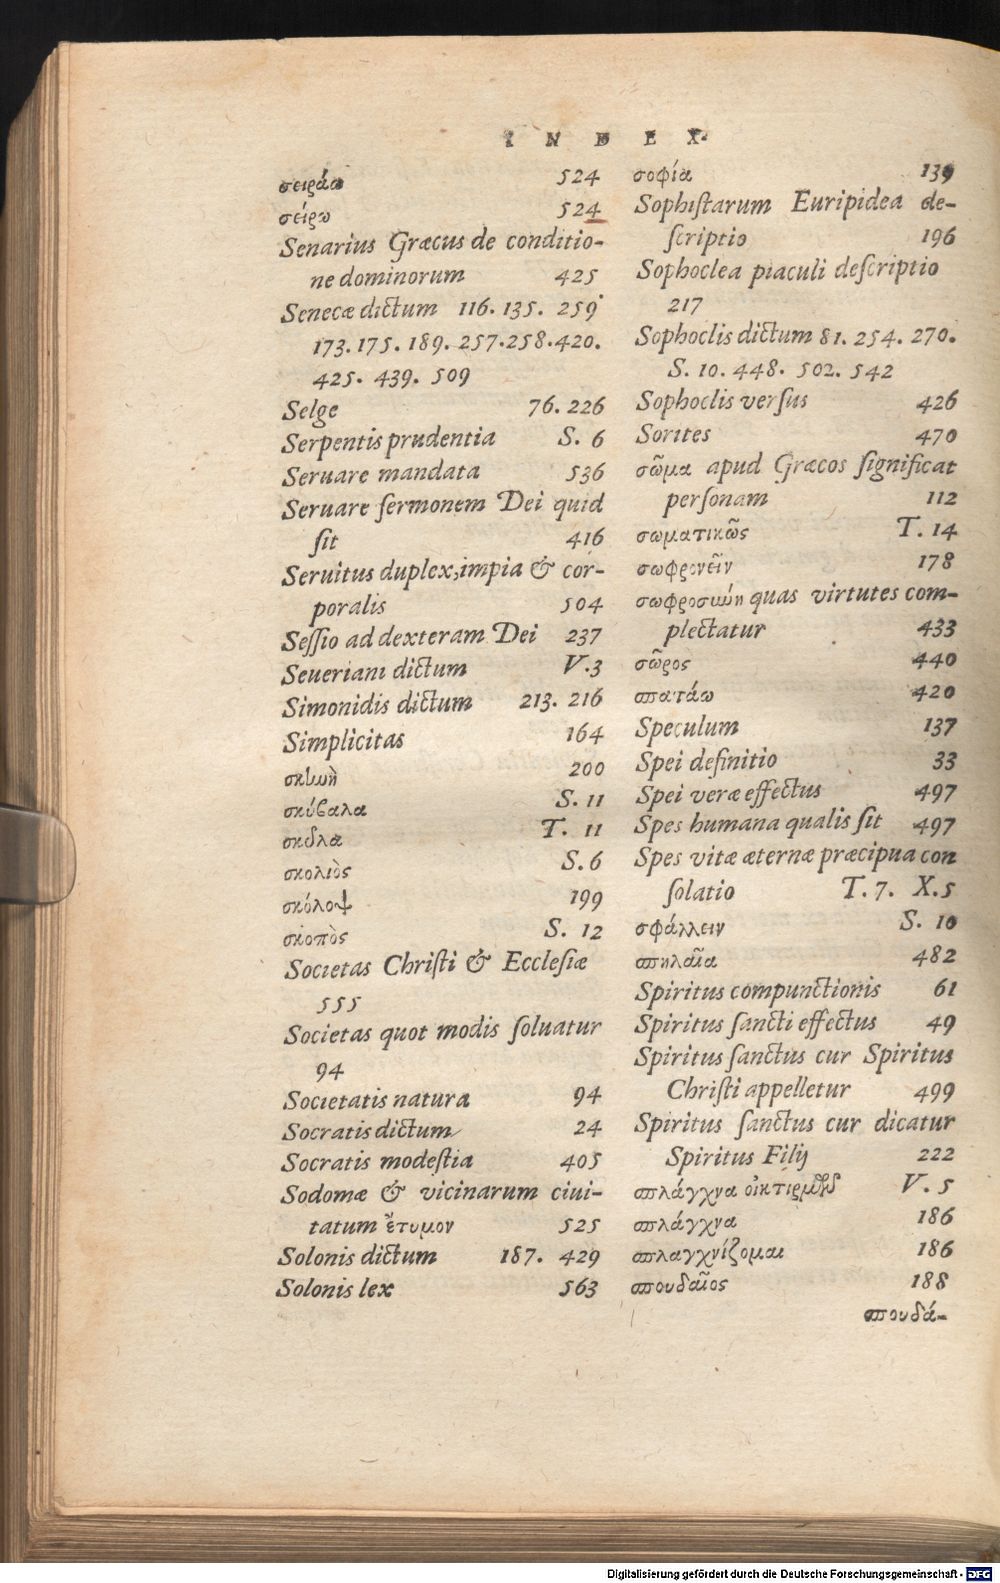 INDEX.
σειράω 524
σείρω 524
Senarius Græcus de conditio-
ne dominorum 425
Senecæ dictum 116. 135. 259
173. 175. 189. 257. 258. 420.
425. 439. 509
Selge 76. 226
Serpentis prudentia S. 6
Seruare mandata 536
Seruare ſermonem Dei quid
ſit 416
Seruitus duplex, impia & cor-
poralis 504
Seſſio ad dexteram Dei 237
Seueriani dictum V. 3
Simonidis dictum 213. 216
Simplicitas 164
σκηνὴ 200
σκύβαλα S. 11
T. 11
σκολιὸς S. 6
σκόλοψ 199
σκοπὸς S. 12
Societas Chriſti & Eccleſiæ
555
Societas quot modis ſoluatur
94
Societatis natura 94
Socratis dictum 24
Socratis modeſtia 405
Sodomæ & vicinarum ciui-
tatum ἔτυμον 525
Solonis dictum 187. 429
Solonis lex 563
σοφία 139
Sophiſtarum Euripidea de-
ſcriptio 196
Sophoclea piaculi deſcriptio
217
Sophoclis dictum 81. 254. 270.
S. 10. 448. 502. 542
Sophoclis verſus 426
Sorites 470
σῶμα apud Græcos ſignificat
perſonam 112
σωματικῶς T. 14
σωφρονεῖν 178
σωφροσύνη quas virtutes com-
plectatur 433
σῶρος 440
σπατάω 420
Speculum 137
Spei definitio 33
Spei veræ effectus 497
Spes humana qualis ſit 497
Spes vitæ æternæ præcipua con
ſolatio T. 7. X. 5
σφάλλειν S. 10
σπηλαῖα 482
Spiritus compunctionis 61
Spiritus ſancti effectus 49
Spiritus ſanctus cur Spiritus
Chriſti appelletur 499
Spiritus ſanctus cur dicatur
Spiritus Filij 222
σπλάγχνα οἰκτιρμῶν V. 5
σπλάγχνα 186
σπλαγχνίζομαι 186
σπουδαῖος 188
σπουδά-
Digitalisierung gefördert durch die Deutsche Forschungsgemeinschaft - DFG